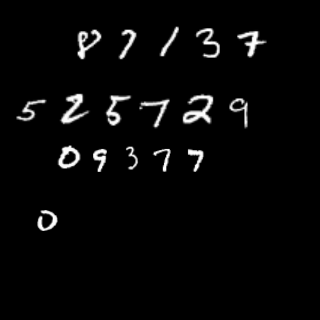 87137
525729
09377
0